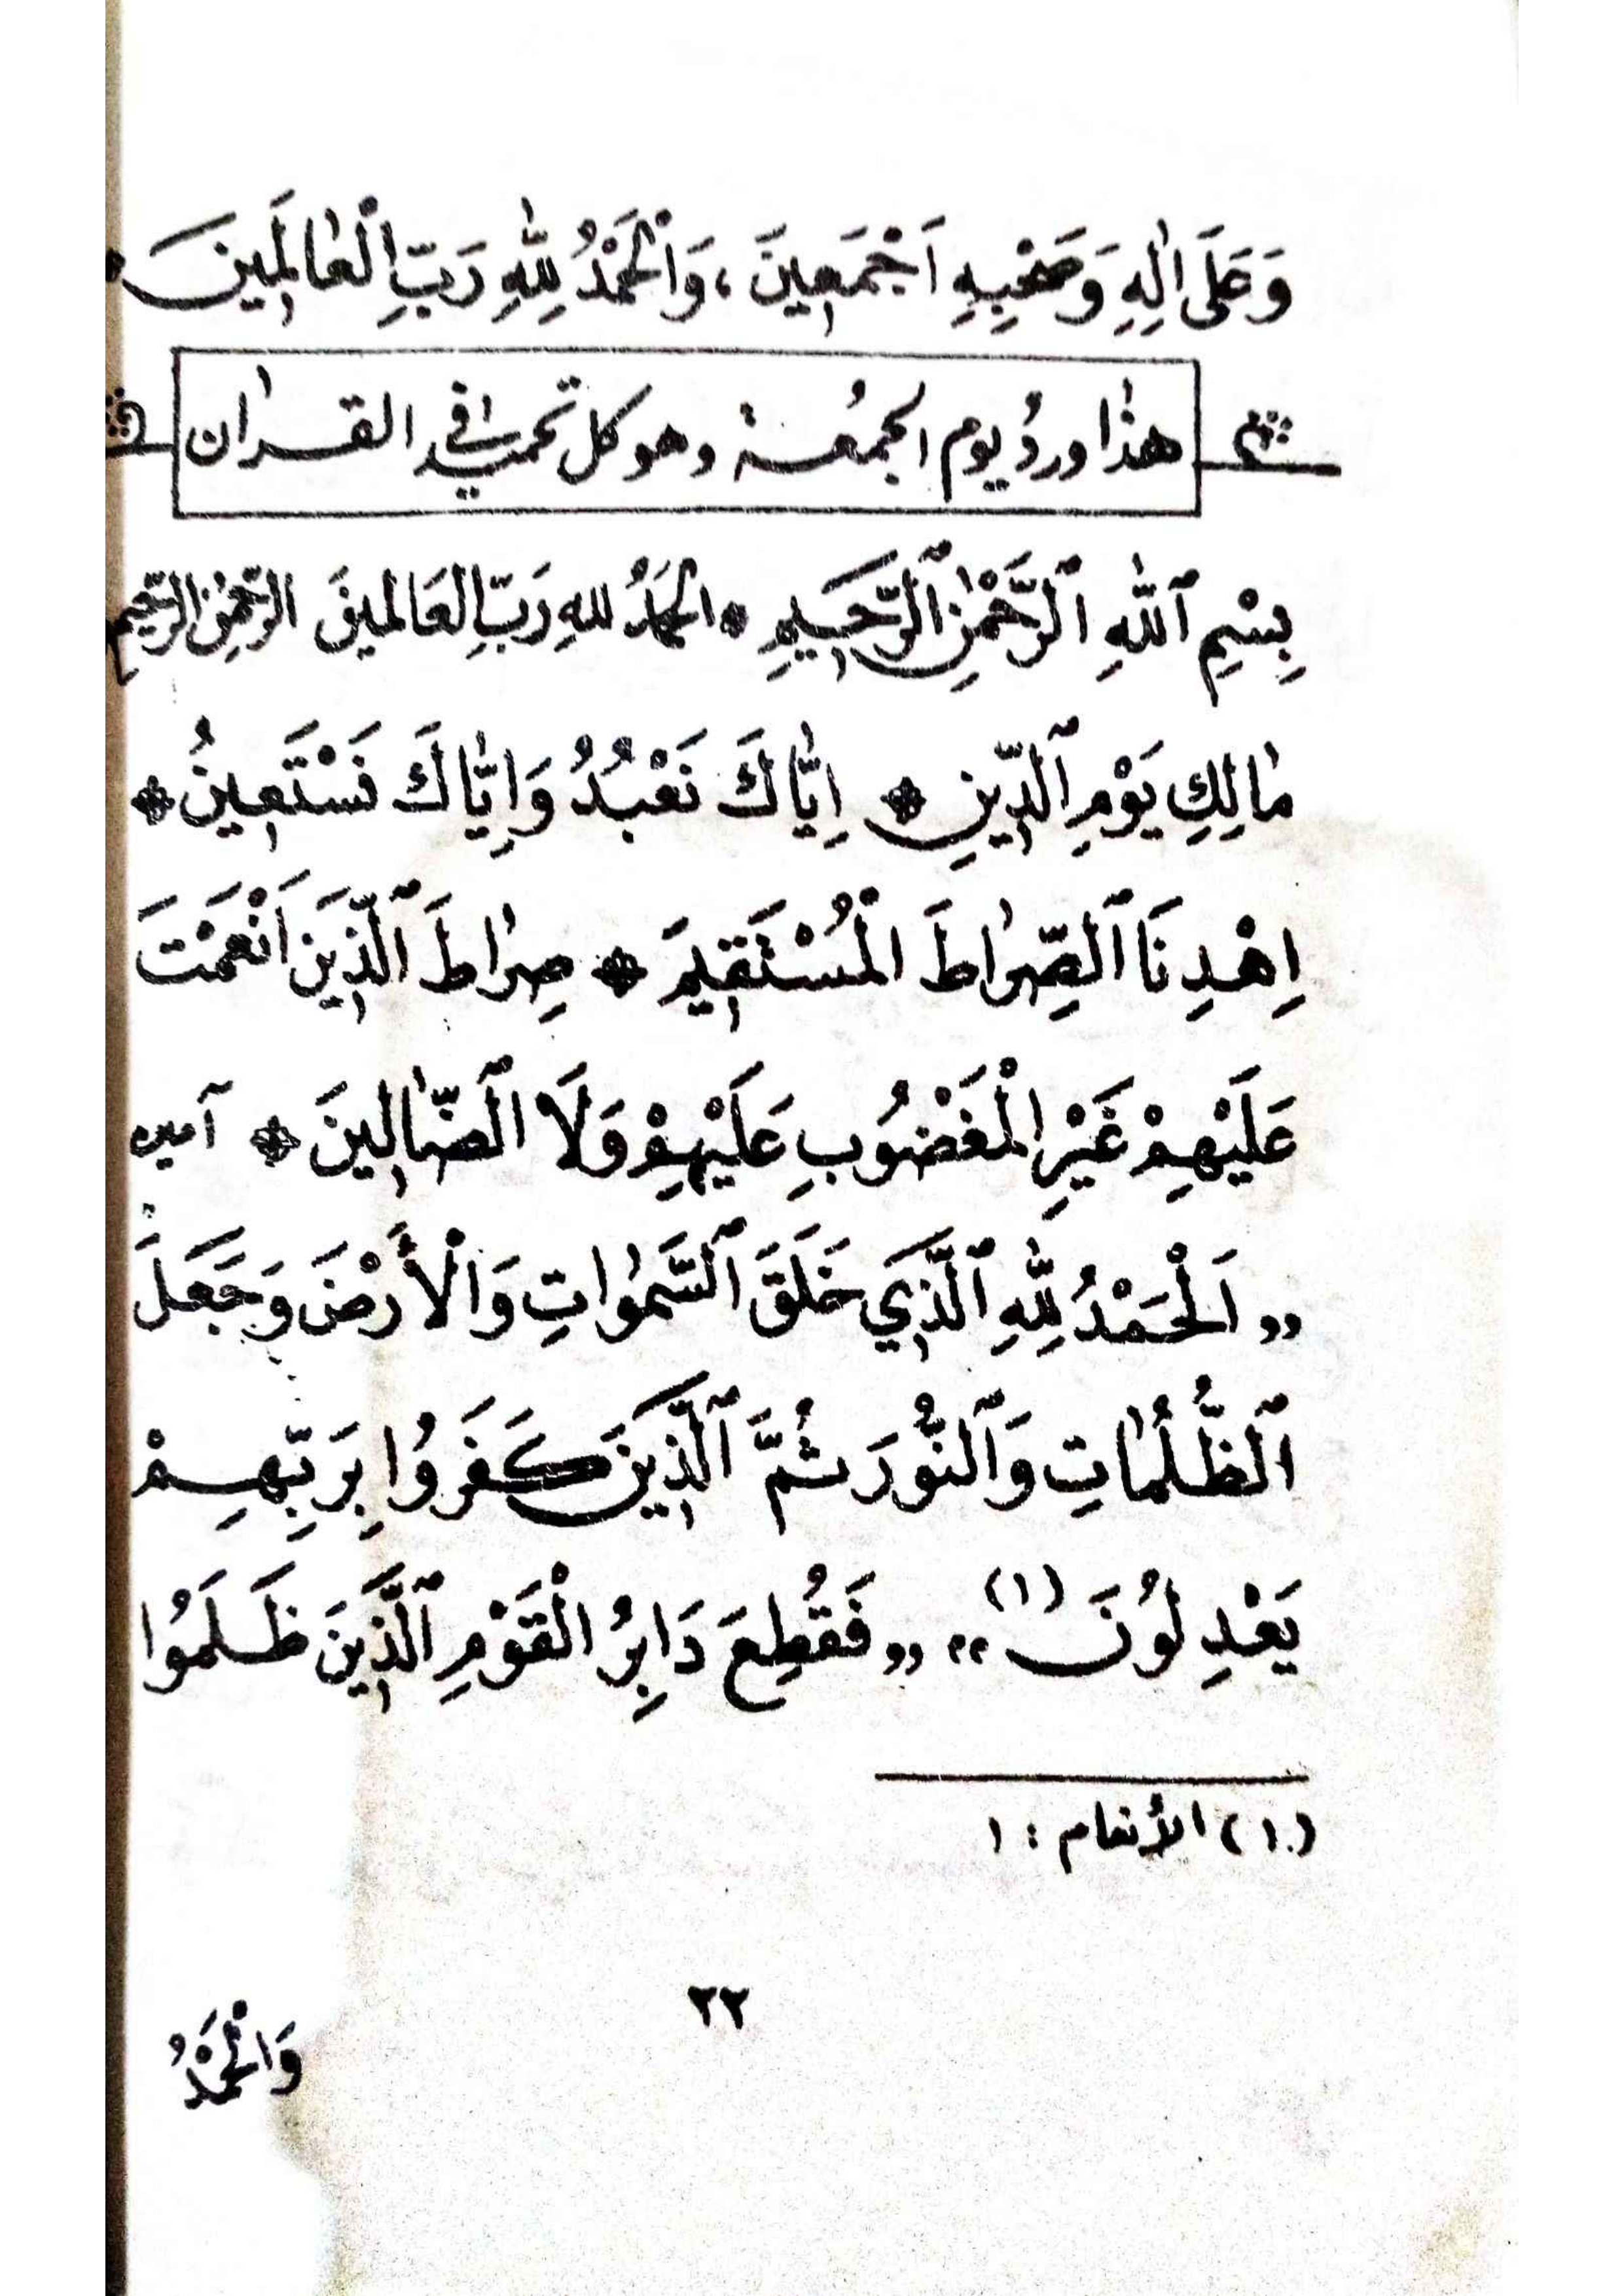 وَعَلَى اٰلِهِ وَصَحْبِهِ اَجْمَعِينَ، وَالْحَمْدُ لِلّٰهِ رَبِّ الْعَالَمِينَ
هذا وردُ يوم الجمُعة وهو كل تحميد في القرآن
بِسْمِ ٱللّٰهِ ٱلرَّحْمٰنِ ٱلرَّحِيمِ * الحَمدُ للهِ رَبِّ العَالمينَ الرَّحمٰنِ الرَّحِيمِ
مٰالِكِ يَوْمِ ٱلدِّينِ * اِيَّاكَ نَعْبُدُ وَاِيَّاكَ نَسْتَعِينُ *
اِهْدِنَا ٱلصِّرٰاطَ الْمُسْتَقِيمَ * صِرٰاطَ ٱلَّذِينَ اَنْعَمْتَ
عَلَيْهِمْ غَيْرِ الْمَغْضُوبِ عَلَيْهِمْ وَلَا ٱلضّٰالِينَ * آمين
,, اَلْحَمْدُ لِلّٰهِ ٱلَّذِي خَلَقَ ٱلسَّمٰوٰاتِ وَالْأَرْضَ وَجَعَلَ
ٱلظُّلُمٰاتِ وَٱلنُّورَ ثُمَّ ٱلَّذِينَ كَفَرُوا بِرَبِّهِمْ
يَعْدِلُونَ (١) ,, ,, فَقُطِعَ دَابِرُ الْقَوْمِ ٱلَّذِينَ ظَلَمُوا
(١) الأنعام : ١
٢٢
وَالْحَمْدُ